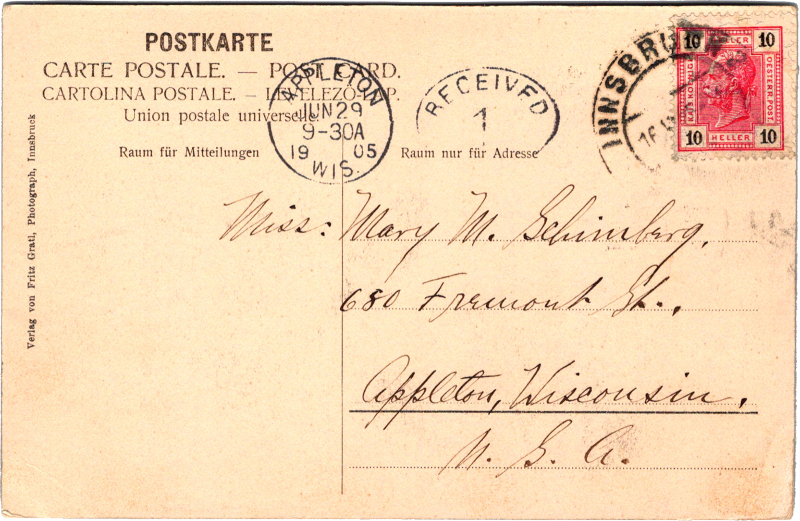 POSTKARTE
CARTE POSTALE. — POST CARD.
CARTOLINA POSTALE. —
Union postale universelle
Raum für Mitteilungen
Raum nur für Adresse
APPLETON
JUN 29
9-30A
19 05
WIS.
RECEIVED
1
INNSBRUCK
10 HELLER 10
KAIS. KÖNIGL.
OESTERR. POST
10 HELLER 10
Verlag von Fritz Gratl, Photograph, Innsbruck
Miss: Mary M. Schimberg,
680 Fremont St.,
Appleton, Wisconsin.
U. S. A.